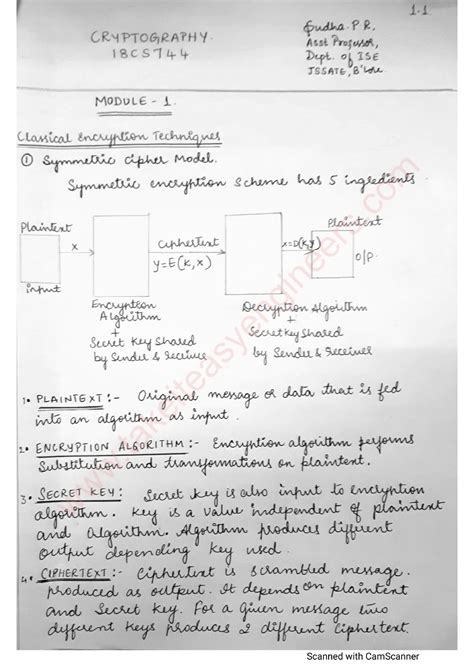 1.1
CRYPTOGRAPHY.
18CS744
Sudha. P.R,
Asst Professor,
Dept. of ISE
JSSATE, B'lore
MODULE - 1.
Classical Encryption Techniques
① Symmetric Cipher Model.
Symmetric encryption scheme has 5 ingredients.
Plaintext
input
x
Ciphertext
y=E(k,x)
x=D(k,y)
Plaintext
O/P.
Encryption
Algorithm
+
Secret Key Shared
by Sender & receiver
Decryption Algorithm
+
Secret Key Shared
by Sender & Receiver
1. PLAINTEXT :- Original message or data that is fed
into an algorithm as input.
2. ENCRYPTION ALGORITHM :- Encryption algorithm performs
Substitution and transformations on plaintext.
3. SECRET KEY : Secret key is also input to encryption
algorithm. Key is a value independent of plaintext
and Algorithm. Algorithm produces different
output depending key used.
4. CIPHERTEXT :- Ciphertext is scrambled message.
produced as output. It depends on plaintext
and Secret Key. For a given message two
different keys produces 2 different Ciphertext.
www.takeiteasyengineers.com
Scanned with CamScanner